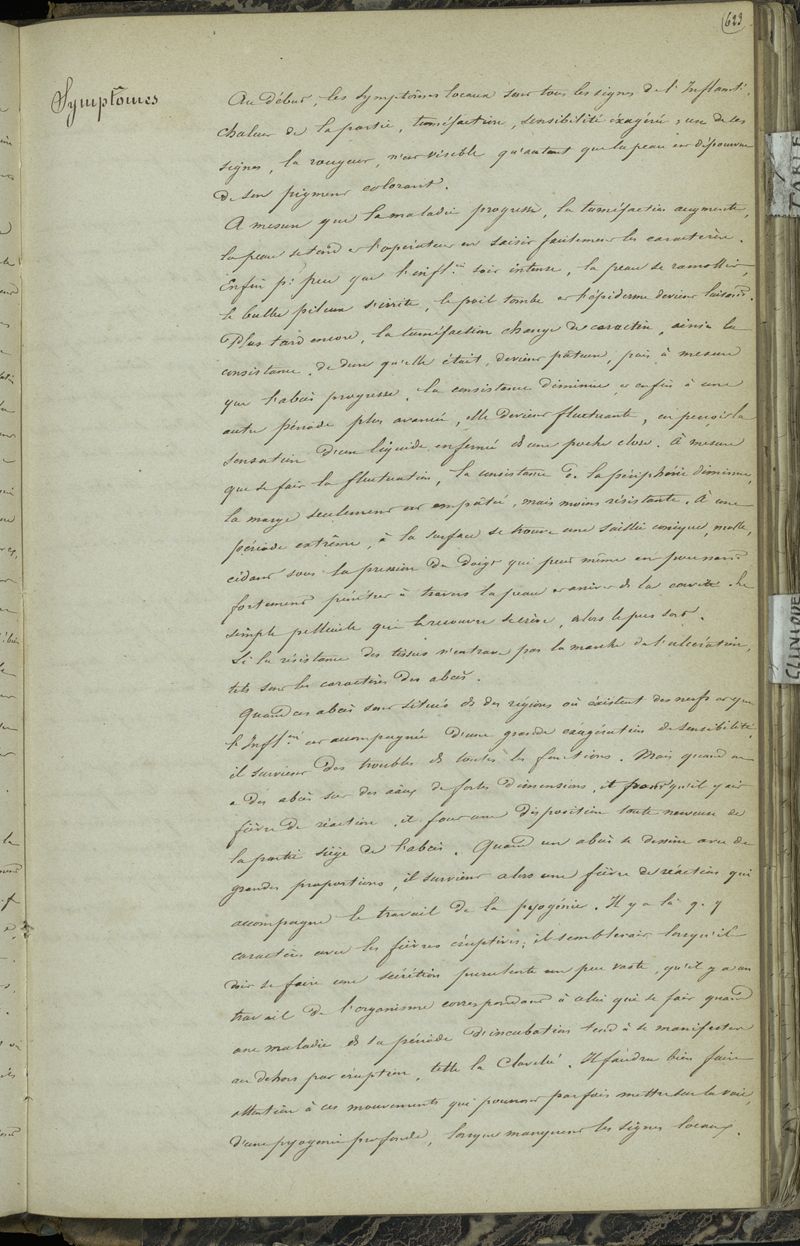 623
Symptômes
Au début, les symptômes locaux sont tous les signes de l'Inflamt.
chaleur de la partie, tuméfaction, sensibilité exagérée ; un de ces
signes, la rougeur, n'est visible qu'autant que la peau est dépourvue
de son pigment colorant.
A mesure que la maladie progresse, la tuméfaction augmente,
la peau se tend et l'opérateur en saisit facilement les caractères.
Enfin pr peu que l'inflon soit intense, la peau se ramollit,
le bulbe pileux s'irrite, le poil tombe et l'épiderme devient luisant.
Plus tard encore, la tuméfaction change de caractère, ainsi la
consistance, de dure qu'elle était, devient pâteuse, puis à mesure
que l'abcès progresse, la consistance diminue et enfin à une
autre période plus avancée, elle devient fluctuante, on perçoit la
sensation d'un liquide enfermé ds une poche close. A mesure
que se fait la fluctuation, la consistance de la périphérie diminue,
la marge seulement est empâtée, mais moins résistante. A une
période extrême, à la surface se trouve une saillie conique, molle,
cédant sous la pression du doigt qui peut même en poussant
fortement pénétrer à travers la peau et arriver ds la cavité. La
simple pellicule qui la recouvre se crève, alors le pus sort.
Si la résistance des tissus n'entrave pas la marche de l'ulcération,
tels sont les caractères des abcès.
Quand ces abcès sont situés ds des régions où existent des nerfs et que
l'Inflon est accompagnée d'une grande exagération de sensibilité,
il survient des troubles ds toutes les fonctions. Mais quand on
a des abcès sur des aaux de fortes dimensions, pour qu'il y ait
fièvre de réaction, il faut une disposition toute nerveuse de
la partie siège de l'abcès. Quand un abcès se dessine avec de
grandes proportions, il survient alors une fièvre de réaction qui
accompagne le travail de la pyogénie. Il y a là q. q
caractères avec les fièvres éruptives ; il semblerait, lorsqu'il
doit se faire une sécrétion purulente un peu vaste, qu'il y a un
travail de l'organisme correspondant à celui qui se fait quand
une maladie ds sa période d'incubation tend à se manifester
au dehors par éruption, telle la Clavelée. Il faudra bien faire
attention à ces mouvements qui pourront parfois mettre sur la voie,
d'une pyogénie profonde, lorsque manquent les signes locaux.
TABLE
CLINIQUE